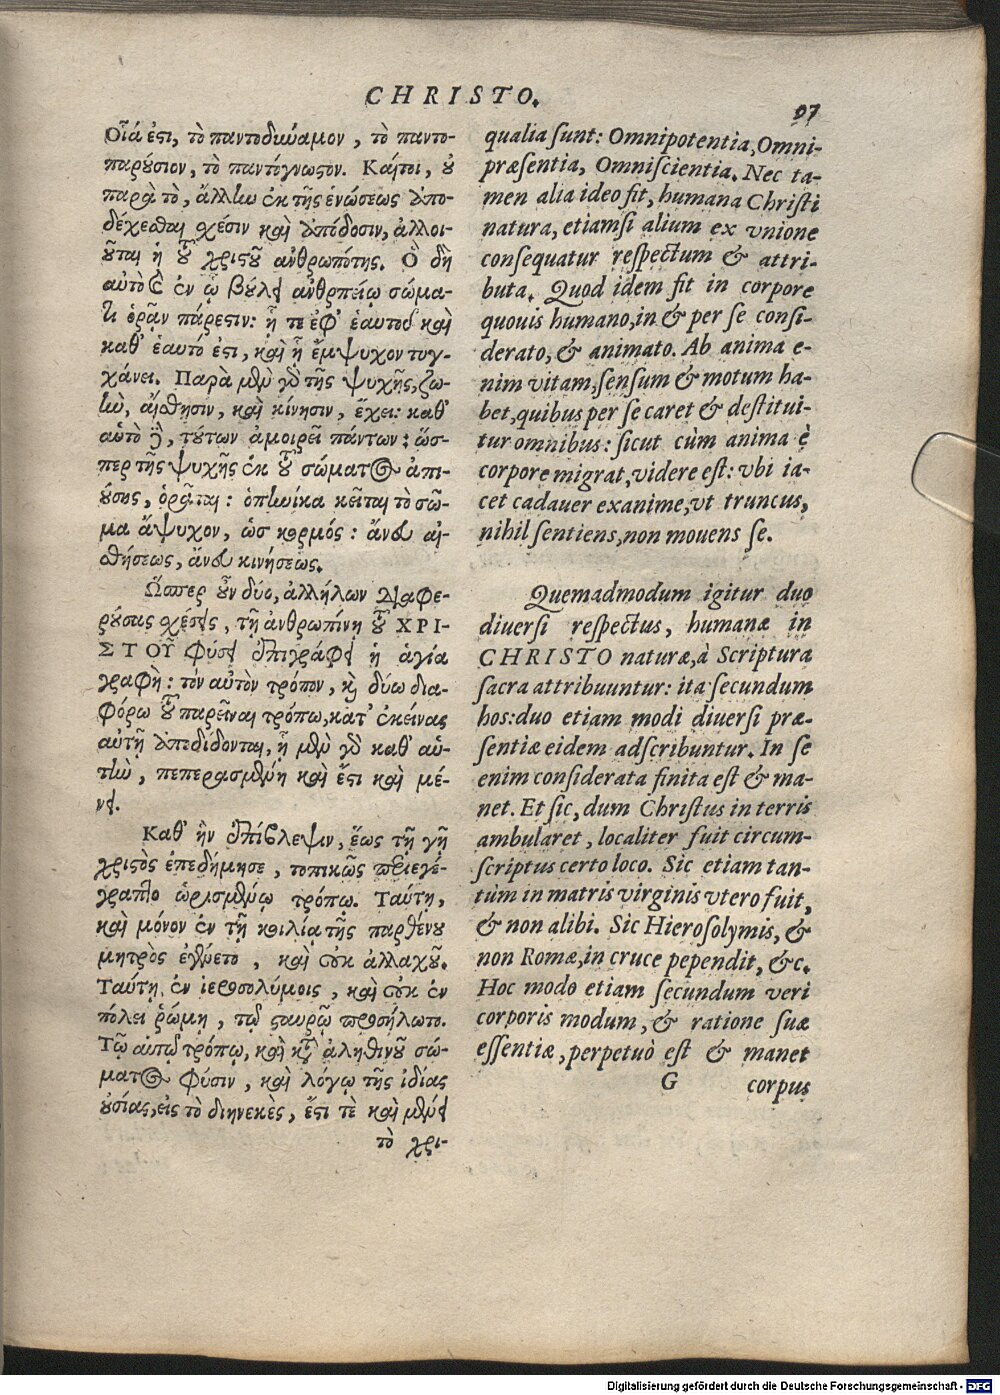 CHRISTO.
97
Οἷά ἐστι, τὸ παντοδιωάμον, τὸ παντο-
παρούσιον, τὸ παντόγνωστον. Καίτοι, οὐ
παρὰ τὸ, ἄλλην ἐκ τῆς ἑνώσεως ἀπο-
δέχεσθαι σχέσιν καὶ ἀπόδοσιν, ἀλλοι-
οῦται ἡ τοῦ χριστοῦ ἀνθρωπότης. Ὃ δὴ
αὐτὸ ἐν ᾧ βούλει ἀνθρωπείῳ σώμα-
τι ὁρᾷν πάρεστιν: ᾗ τε ἐφ' ἑαυτοῦ καὶ
καθ' ἑαυτό ἐστι, καὶ ᾗ ἔμψυχον τυγ-
χάνει. Παρὰ μὲν γὰρ τῆς ψυχῆς, ζω-
ὴν, αἴσθησιν, καὶ κίνησιν, ἔχει: καθ'
αὑτὸ δὲ, τούτων ἀμοιρεῖ πάντων: ὥσ-
περ τῆς ψυχῆς ἐκ τοῦ σώματος ἀπι-
ούσης, ὁρᾶται: ὁπηνίκα κεῖται τὸ σῶ-
μα ἄψυχον, ὡσ κορμός: ἄνευ αἰ-
σθήσεως, ἄνευ κινήσεως.
Ὥσπερ οὖν δύο, ἀλλήλων διαφε-
ρούσας σχέσεις, τῇ ἀνθρωπίνῃ τοῦ ΧΡΙ-
ΣΤΟΥ͂ φύσει ἐπιγράφει ἡ ἁγία
γραφὴ: τὸν αὐτὸν τρόπον, καὶ δύω δια-
φόρω τοῦ παρεῖναι τρόπω, κατ' ἐκείνας
αὐτῇ ἀποδίδονται, ᾗ μὲν γὰρ καθ' αὑ-
τὴν, πεπερασμένη καὶ ἔστι καὶ μέ-
νει.
Καθ' ἣν ἐπίβλεψιν, ἕως τῇ γῇ
χριστὸς ἐπεδήμησε, τοπικῶς περιεγέ-
γραπτο ὡρισμένῳ τρόπῳ. Ταύτῃ,
καὶ μόνον ἐν τῇ κοιλίᾳ τῆς παρθένου
μητρὸς ἐγένετο, καὶ οὐκ ἀλλαχοῦ.
Ταύτῃ, ἐν ἱεροσολύμοις, καὶ οὐκ ἐν
πόλει ῥώμῃ, τῷ σταυρῷ προσήλωτο.
Τῷ αὐτῷ τρόπῳ, καὶ κατὰ τοῦ ἀληθινοῦ σώ-
ματος φύσιν, καὶ λόγῳ τῆς ἰδίας
οὐσίας, εἰς τὸ διηνεκὲς, ἔστι τὲ καὶ μένει
τὸ χρι-
qualia sunt: Omnipotentia, Omni-
præsentia, Omniscientia. Nec ta-
men alia ideo fit, humana Christi
natura, etiamsi alium ex vnione
consequatur respectum & attri-
buta. Quod idem fit in corpore
quouis humano, in & per se consi-
derato, & animato. Ab anima e-
nim vitam, sensum & motum ha-
bet, quibus per se caret & destitui-
tur omnibus: sicut cùm anima è
corpore migrat, videre est: vbi ia-
cet cadauer exanime, vt truncus,
nihil sentiens, non mouens se.
Quemadmodum igitur duo
diuersi respectus, humanæ in
CHRISTO naturæ, à Scriptura
sacra attribuuntur: ita secundum
hos: duo etiam modi diuersi præ-
sentiæ eidem adscribuntur. In se
enim considerata finita est & ma-
net. Et sic, dum Christus in terris
ambularet, localiter fuit circum-
scriptus certo loco. Sic etiam tan-
tùm in matris virginis vtero fuit,
& non alibi. Sic Hierosolymis, &
non Romæ, in cruce pependit, &c.
Hoc modo etiam secundum veri
corporis modum, & ratione suæ
essentiæ, perpetuò est & manet
G
corpus
Digitalisierung gefördert durch die Deutsche Forschungsgemeinschaft - DFG